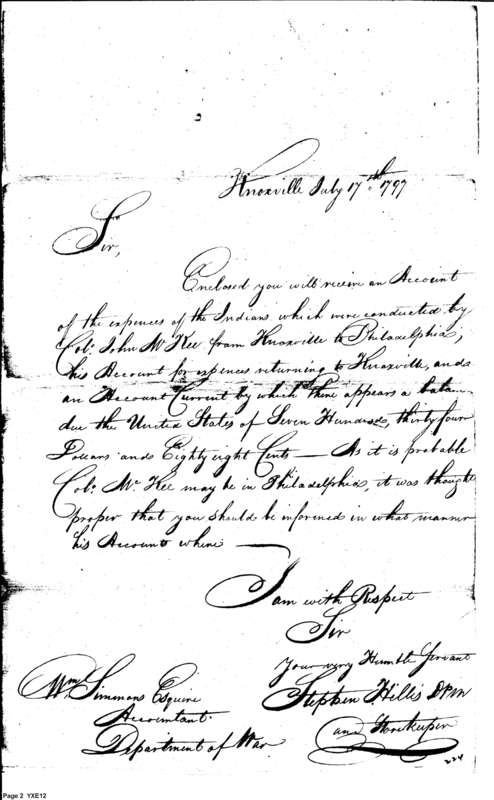 Knoxville July 17th 1797
Sir,
Enclosed you will receive an Account
of the expences of the Indians which were conducted by
Colo. John McKee from Knoxville to Philadelphia,
his Account for expences returning to Knoxville, and
an Account Current by which there appears a balan
due the United States of Seven Hundred, thirty four
Dollars and Eighty eight Cents — As it is probable
Colo. McKee may be in Philadelphia, it was though
proper that you should be informed in what manner
his Accounts where —
I am with Respect
Sir
Your very Humble Servant
Stephen Hillis
and Storekeeper
Wm Simmons Esquire
Accountant
Department of War
224
Page 2 YXE12